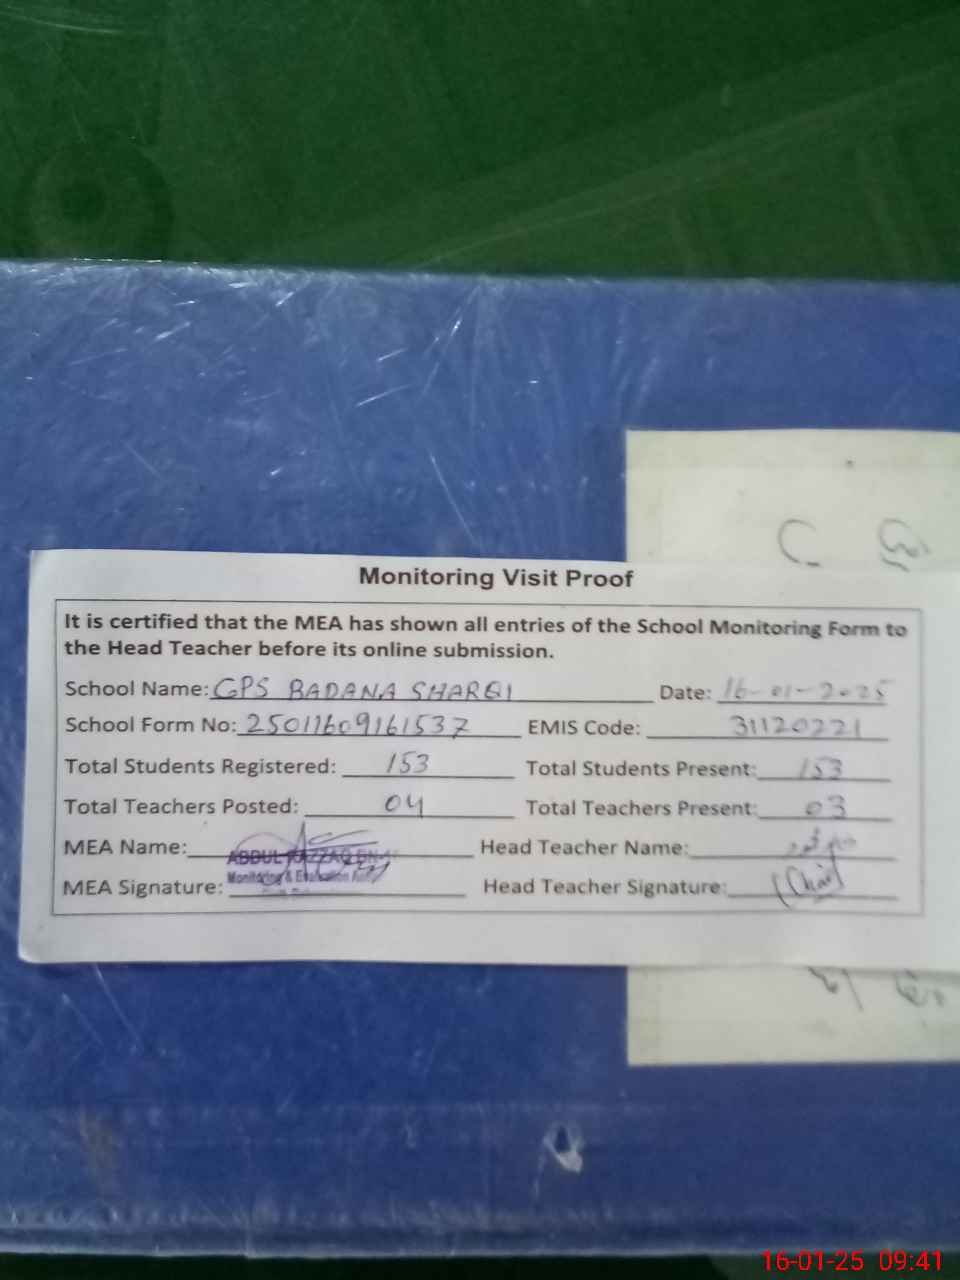 Monitoring Visit Proof
It is certified that the MEA has shown all entries of the School Monitoring Form to
the Head Teacher before its online submission.
School Name: GPS BADANA SHARQI Date: 16-01-2025
School Form No: 25011609161537 EMIS Code: 31120221
Total Students Registered: 153 Total Students Present: 153
Total Teachers Posted: 04 Total Teachers Present: 03
MEA Name: ABDUL RAZZAQ Head Teacher Name:
Monitoring & Evaluation
MEA Signature: Head Teacher Signature:
16-01-25 09:41